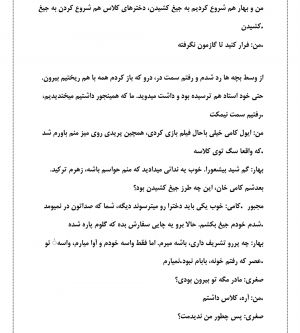 من و بهار هم شروع کردیم به جیغ کشیدن، دخترهای کلاس هم شروع کردن به جیغ
.کشیدن
.من: فرار کنید تا گازمون نگرفته
از وسط بچه ها رد شدم و رفتم سمت در، درو که باز کردم همه با هم ریختیم بیرون.
حتی خود استاد هم ترسیده بود و داشت میدوید. ما که همینجور داشتیم میخندیدیم،
.رفتیم سمت نیمکت
من: ایول کامی خیلی باحال فیلم بازی کردی، همچین پریدی روی میز منم باورم شد
.که واقعا سگ توی کلاسه
بهار: گم شید بیشعورا. خوب یه ندائی میدادید که منم حواسم باشه، زهرم ترکید.
بعدشم کامی خان، این چه طرز جیغ کشیدن بود؟
مجبور .کامی: خوب یکی باید دخترا رو میترسوند دیگه، شما که صداتون در نمیومد
.شدم خودم جیغ بکشم. حالا برو یه چایی سفارش بده که گلوم پاره شده
بهار: چه پررو تشریف داری، باشه میرم. اما فقط واسه خودم و آوا میارم، واسه تو
.عصر که رفتم خونه، بابام نبود،نمیارم
صغری: مادر مگه تو بیرون بودی؟
.من: آره، کلاس داشتم
صغری: پس چطور من ندیدمت؟